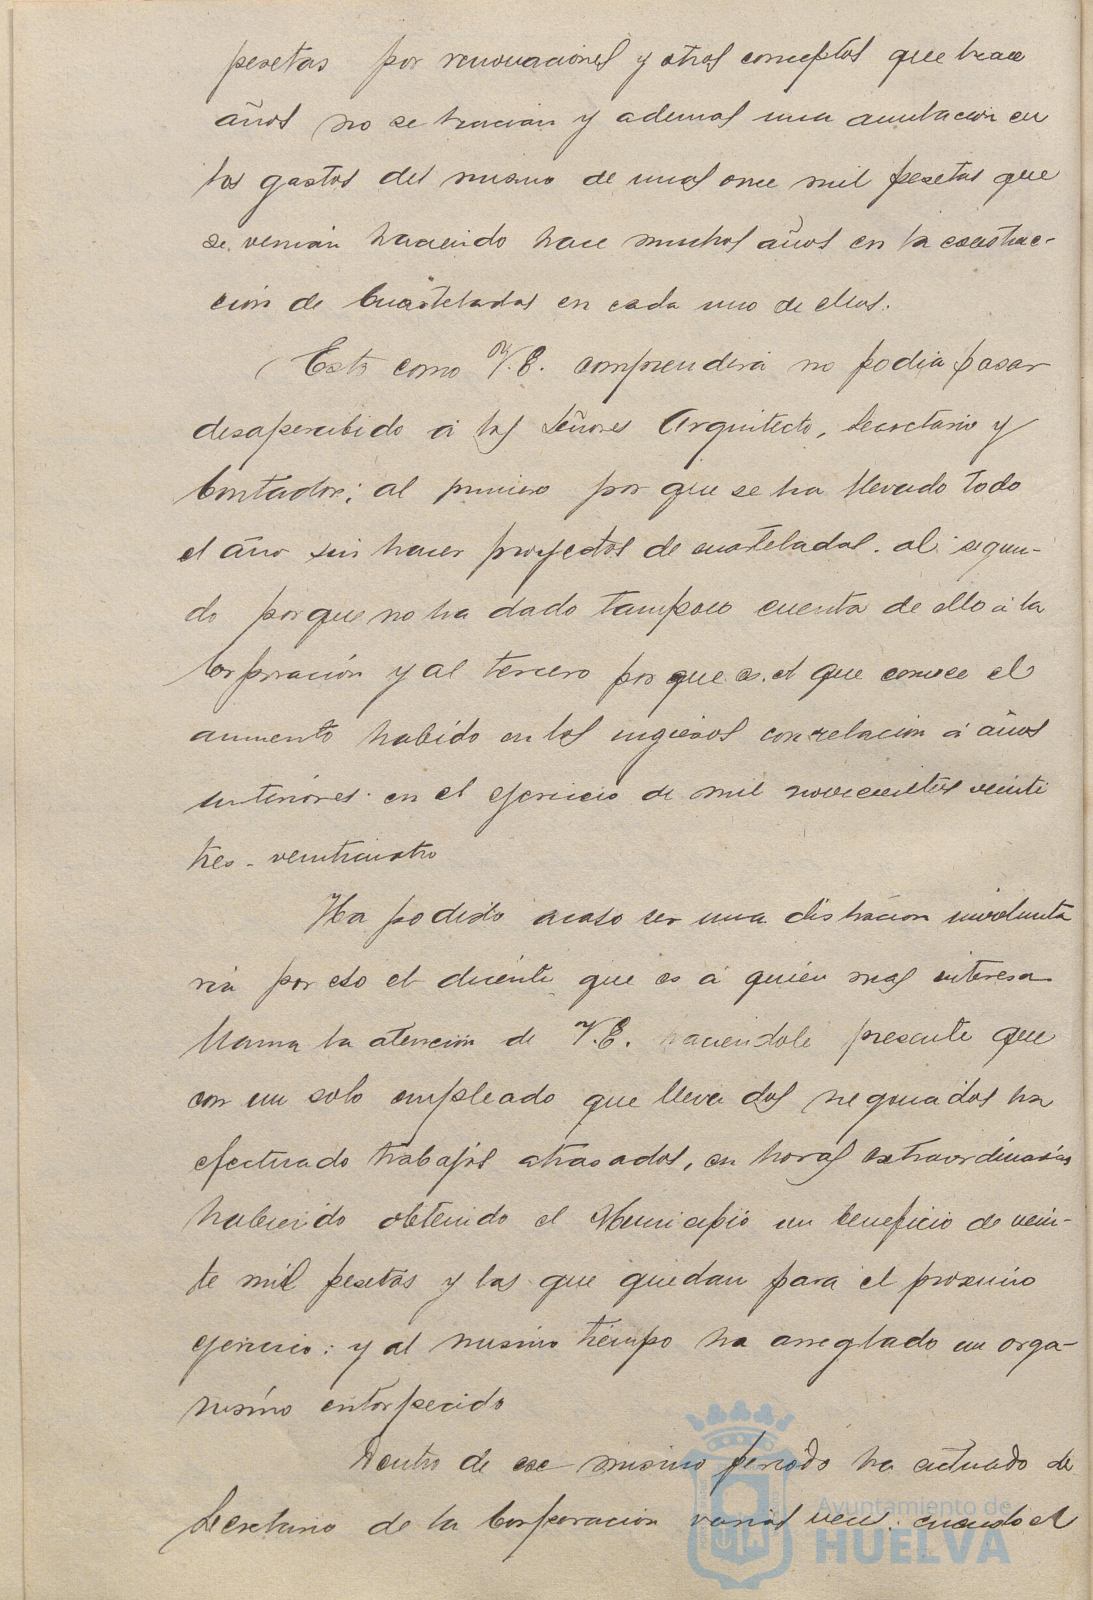 pesetas por renovaciones y otros conceptos que hace
años no se hacian y ademas una anulacion en
los gastos del mismo de unas once mil pesetas que
se venian haciendo hace muchos años en la construc-
ción de Cuarteladas en cada uno de ellos.
Esto como V.E. comprenderá no podia pasar
desapercibido á los Señores Arquitecto, Secretario y
Contador; al primero por que se ha llevado todo
el año sin hacer proyectos de cuarteladas. al segun-
do porque no ha dado tampoco cuenta de ello á la
Corporación y al tercero por que es el que conoce el
aumento habido en los ingresos con relacion á años
anteriores en el ejercicio de mil novecientos veinti
tres-veinticuatro
Ha podido acaso ser una distracion involunta
ria por eso el diciente que es á quien mas interesa
llama la atención de V.E. haciendole presente que
con un solo empleado que lleva dos negociados ha
efectuado trabajos atrasados, en horas extraordinarias
habiendo obtenido el Municipio un beneficio de vein-
te mil pesetas y las que quedan para el proximo
ejercicio: y al mismo tiempo ha arreglado un orga-
nismo entorpecido
Dentro de ese mismo periodo ha actuado de
Secretario de la Corporacion varias veces cuando el
Ayuntamiento de
HUELVA